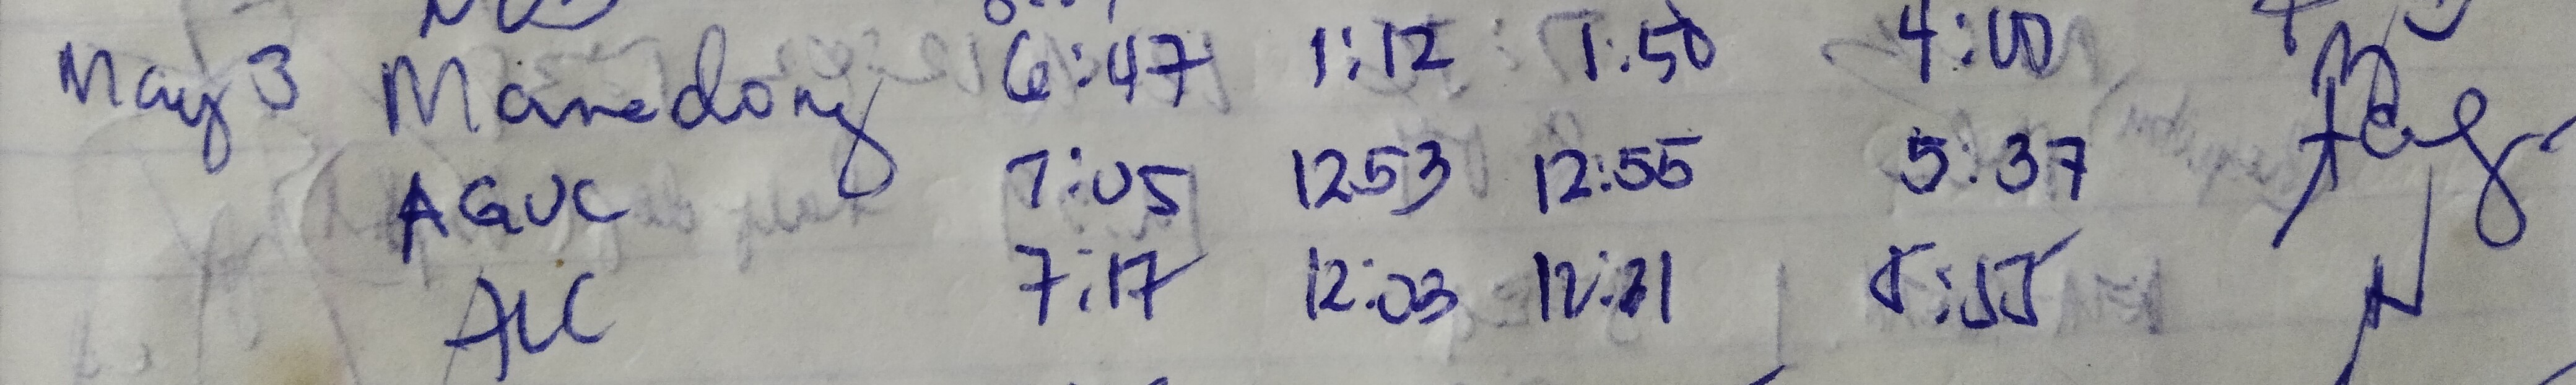 May 3 Manedong 6:47 1:12 1:50 4:00
AGUC 7:05 1253 12:55 5:37
ALC 7:17 12:03 12:21 5:55